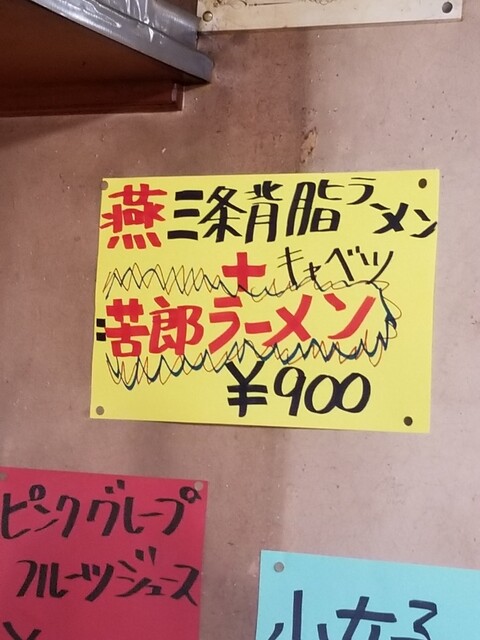 燕三条背脂ラーメン
+キャベツ
=苦郎ラーメン
¥900
ピンクグレープ
フルーツジュース
小女子